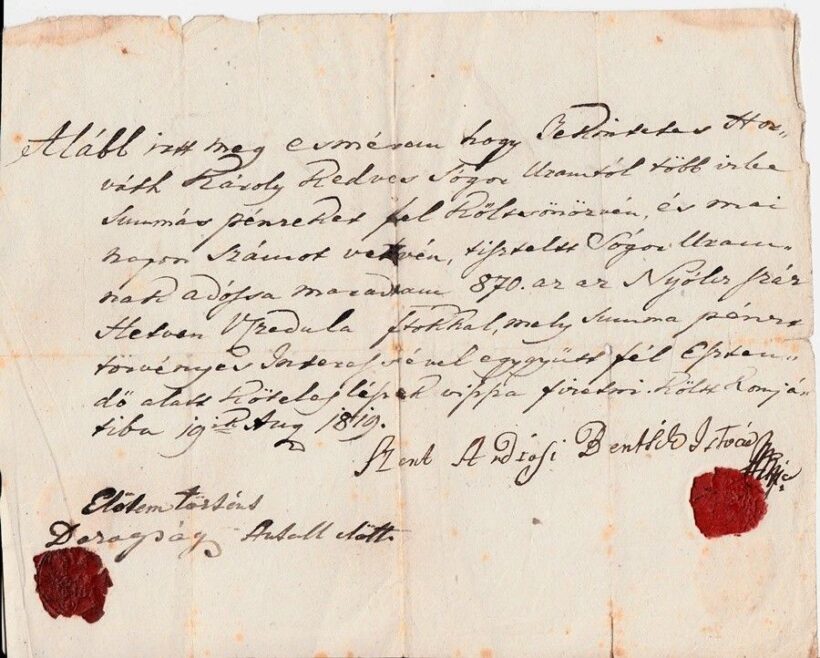 Alább irtt meg esmérem hogy Tekintetes Hor„
váth Károly Kedves Sógor Uramtól több izbe
Summás pénzeket fel költsönözvén, és mai
napon számot vetvén, tisztelt Sógor Uram„
nak adóssa maradtam 870. az az Nyoltz száz
Hetven V Zedula ftokkal, mely Summa pénzt
törvényes Interessével eggyütt fél Eszten„
dő alatt köteles lészek vissza fizetni. költ Komjá„
tiba 19ik Aug 1819.
Szent István
Előttem történt
Antall előtt